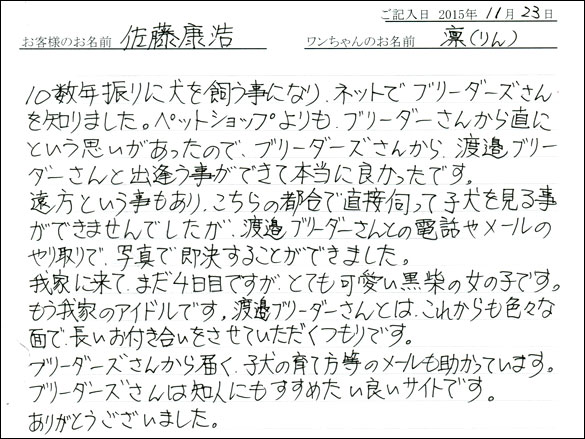 ご記入日 2015年 11月 23日
お客様のお名前 佐藤康浩 ワンちゃんのお名前 凛(りん)
10数年振りに犬を飼う事になり、ネットでブリーダーズさん
を知りました。ペットショップよりも、ブリーダーさんから直に
という思いがあったので、ブリーダーズさんから、渡邉ブリー
ダーさんと出逢う事ができて本当に良かったです。
遠方という事もあり、こちらの都合で直接伺って子犬を見る事
ができませんでしたが、渡邉ブリーダーさんとの電話やメールの
やり取りで、写真で即決することができました。
我家に来て、まだ4日目ですが、とても可愛い黒柴の女の子です。
もう我家のアイドルです。渡邉ブリーダーさんとは、これからも色々な
面で、長いお付き合いをさせていただくつもりです。
ブリーダーズさんから届く、子犬の育て方等のメールも助かっています。
ブリーダーズさんは知人にもすすめたい良いサイトです。
ありがとうございました。